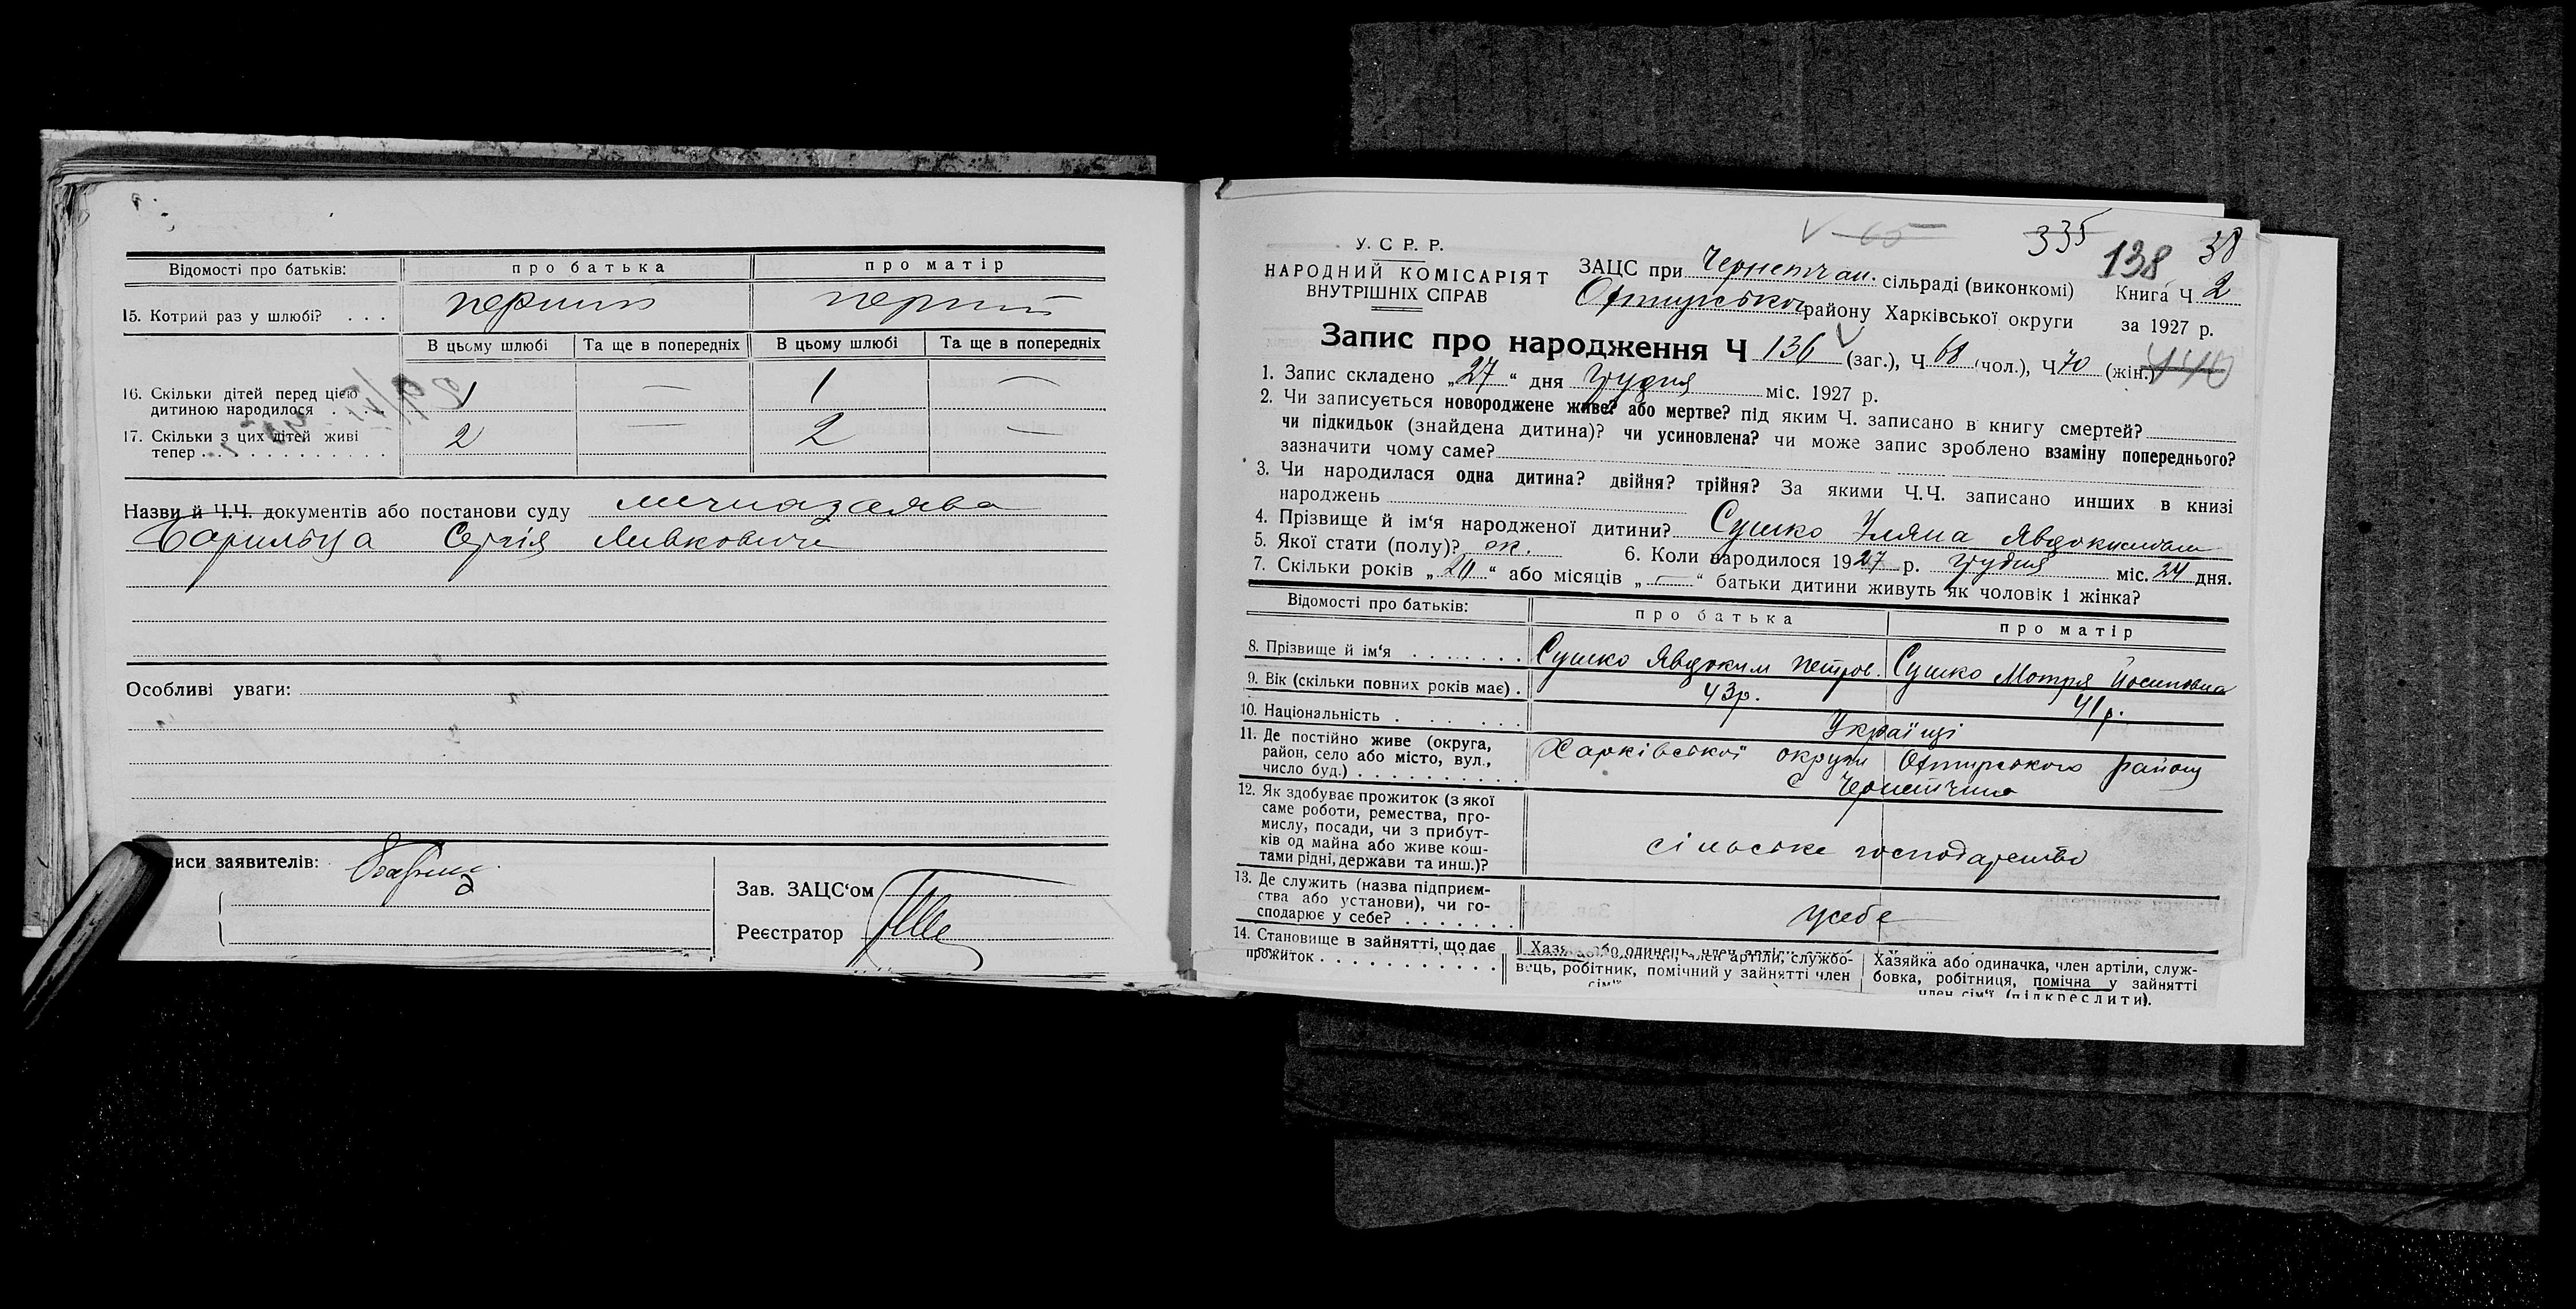 Відомості про батьків: про батька про матір
15. Котрий раз у шлюбі? . . . перший перший
В цьому шлюбі Та ще в попередніх В цьому шлюбі Та ще в попередніх
16. Скільки дітей перед цією
дитиною народилося . 1 — 1 —
17. Скільки з цих дітей живі
тепер . . . . . . . . . . . . 2 — 2 —
Назви й Ч.Ч. документів або постанови суду
Сергія
Особливі уваги:
иси заявителів:
Зав. ЗАЦС'ом
Реєстратор
335
138 38
У. С Р. Р.
НАРОДНИЙ КОМІСАРІЯТ
ВНУТРІШНІХ СПРАВ
ЗАЦС при Чернетчан. сільраді (виконкомі) Книга Ч. 2
Охтирського району Харківської округи за 1927 р.
Запис про народження Ч 136 (заг.), Ч. 68 (чол.), Ч 70 (жін.) 140
1. Запис складено „27" дня грудня міс. 1927 р.
2. Чи записується новороджене живе? або мертве? під яким Ч. записано в книгу смертей?
чи підкидьок (знайдена дитина)? чи усиновлена? чи може запис зроблено взаміну попереднього?
зазначити чому саме?
3. Чи народилася одна дитина? двійня? трійня? За якими Ч.Ч. записано инших в книзі
народжень
4. Прізвище й ім'я народженої дитини? Сушко Уляна
5. Якої стати (полу)? ж. 6. Коли народилося 1927 р. грудня міс. 24 дня.
7. Скільки років „20" або місяців „—" батьки дитини живуть як чоловік і жінка?
Відомості про батьків: про батька про матір
8. Прізвище й ім'я . . . . . . . Сушко Явдоким Петров. Сушко Мотря Йосиповна
9. Вік (скільки повних років має) . 43р. 41р.
10. Національність . . . . . . Українці
11. Де постійно живе (округа,
район, село або місто, вул.,
число буд.) . . . . . . . . . . Харківської округи Охтирського району
с Чернетчина
12. Як здобуває прожиток (з якої
саме роботи, ремества, про-
мислу, посади, чи з прибут-
ків од майна або живе кош-
тами рідні, держави та инш.)? сільське господарство
13. Де служить (назва підприєм-
ства або установи), чи го-
сподарює у себе? . . . . . . . усебе
14. Становище в зайнятті, що дає
прожиток . . . . . . . . . . . .
Хазяїн або одинець, член артіли, службо-
вець, робітник, помічний у зайнятті член
сім'ї
Хазяйка або одиначка, член артіли, служ-
бовка, робітниця, помічна у зайнятті
член сім'ї (підкреслити).